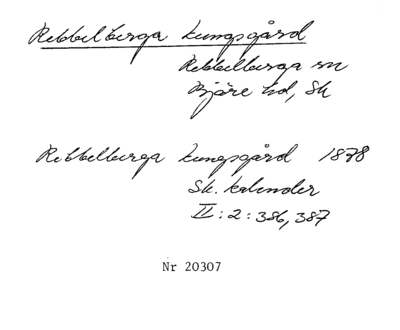 Rebbelberga kungsgård
Rebbelberga sn
Bjäre hd, Sk
Rebbelberga kungsgård 1878
Sk. kalender
II:2:386,387
Nr 20307